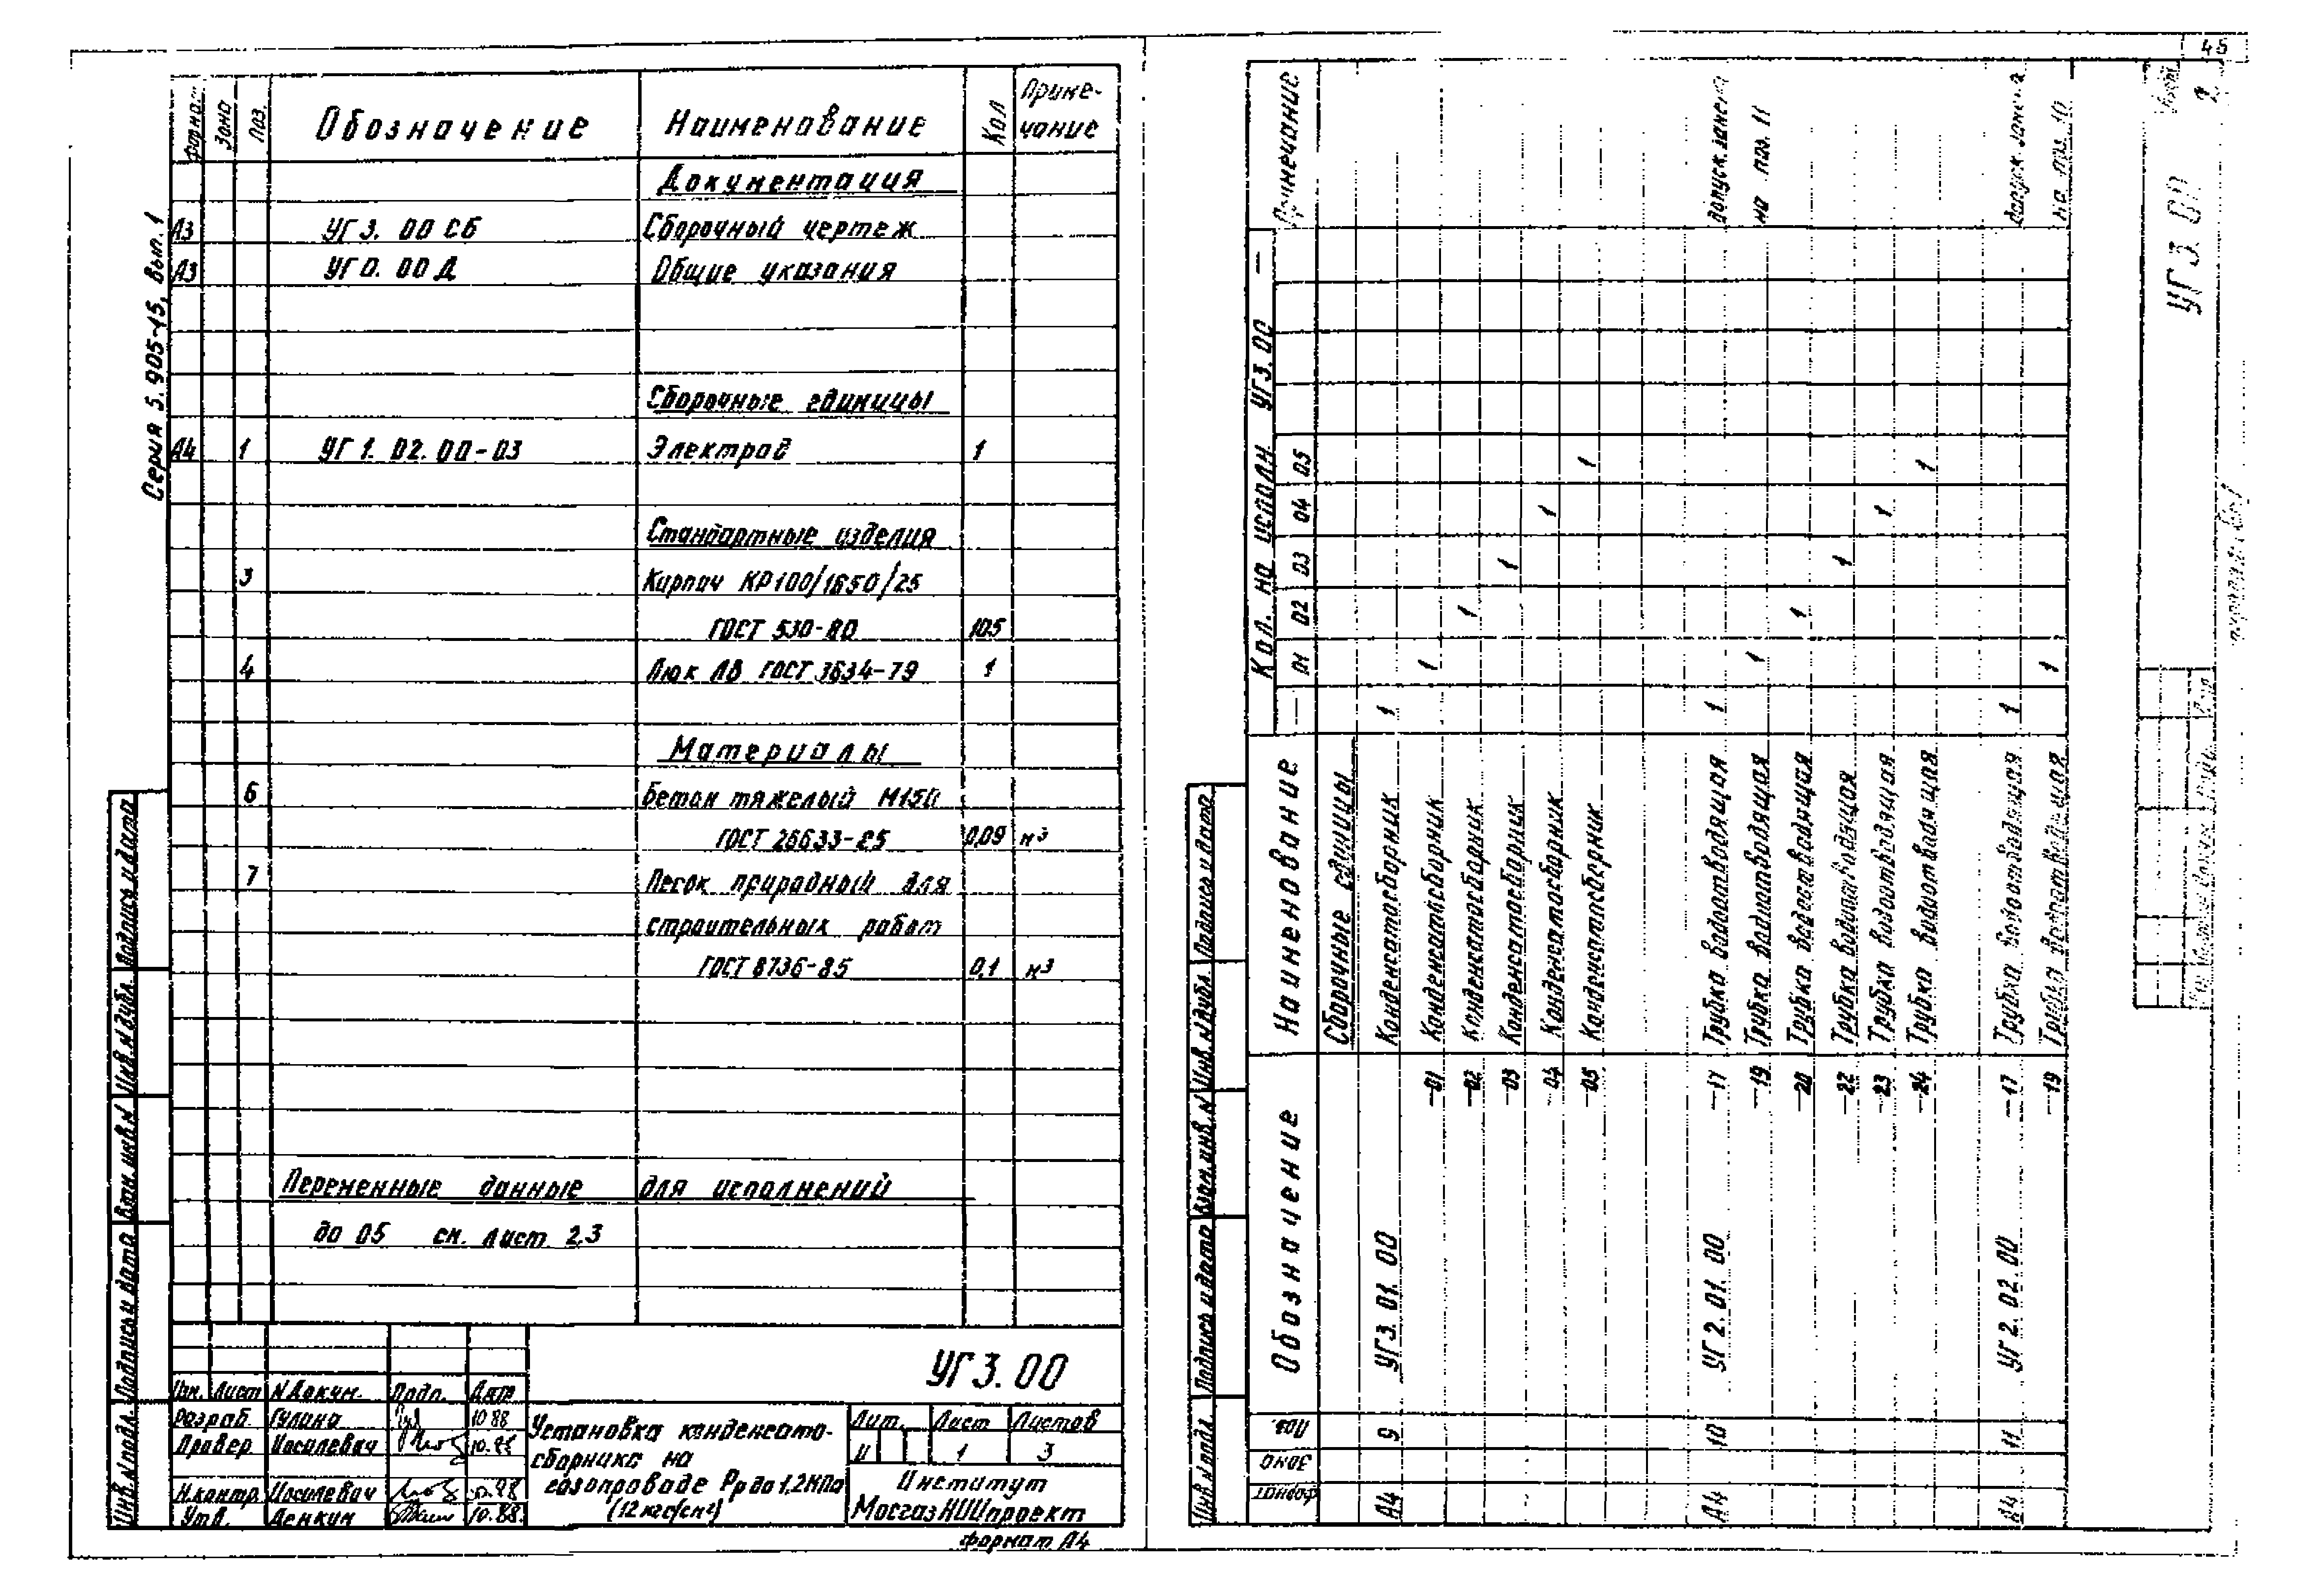 45
Серия 5.905-15, вып. 1
Формат Зона Поз. Обозначение Наименование Кол Приме-
чание
Документация
А3 УГ3. 00 СБ Сборочный чертеж
А3 УГ0. 00 Д Общие указания
Сборочные единицы
А4 1 УГ 1. 02. 00-03 Электрод 1
Стандартные изделия
3 Кирпич КР100/1650/25
ГОСТ 530-80 105
4 Люк ЛВ ГОСТ 3634-79 1
Материалы
6 Бетон тяжелый М150
ГОСТ 26633-85 0,09 м³
7 Песок природный для
строительных работ
ГОСТ 8736-85 0,1 м³
Переменные данные для исполнений
до 05 см. лист 2,3
Инв. N подл. Подпись и дата Взам. инв. N Инв. N дубл. Подпись и дата
УГ3. 00
Изм. Лист N Докум. Подп. Дата
Разраб. Гулина 10.88
Провер. Иосилевич 10.88
Н.контр. Иосилевич 10.88
Утв. Денкин 10.88.
Установка конденсато-
сборника на
газопроводе Рр до 1,2МПа
(12 кгс/см²)
Лит. Лист Листов
И 1 3
Институт
МосгазНИИпроект
формат А4
Формат Зона Поз. Обозначение Наименование Кол. на исполн УГ3. 00 — Примечание
— 01 02 03 04 05
Сборочные единицы
А4 9 УГ3. 01. 00 Конденсатосборник 1
-01 Конденсатосборник 1
-02 Конденсатосборник 1
-03 Конденсатосборник 1
-04 Конденсатосборник 1
-05 Конденсатосборник 1
А4 10 УГ2. 01. 00 -17 Трубка водоотводящая 1 допуск. замена
-19 Трубка водоотводящая 1 на поз. 11
-20 Трубка водоотводящая 1
-22 Трубка водоотводящая 1
-23 Трубка водоотводящая 1
-24 Трубка водоотводящая 1
А4 11 УГ2. 02. 00 -17 Трубка водоотводящая 1 допуск. замена
-19 Трубка водоотводящая 1 на поз. 10
Инв. N подл. Подпись и дата Взам. инв. N Инв. N дубл. Подпись и дата
УГ3. 00
Лист
2